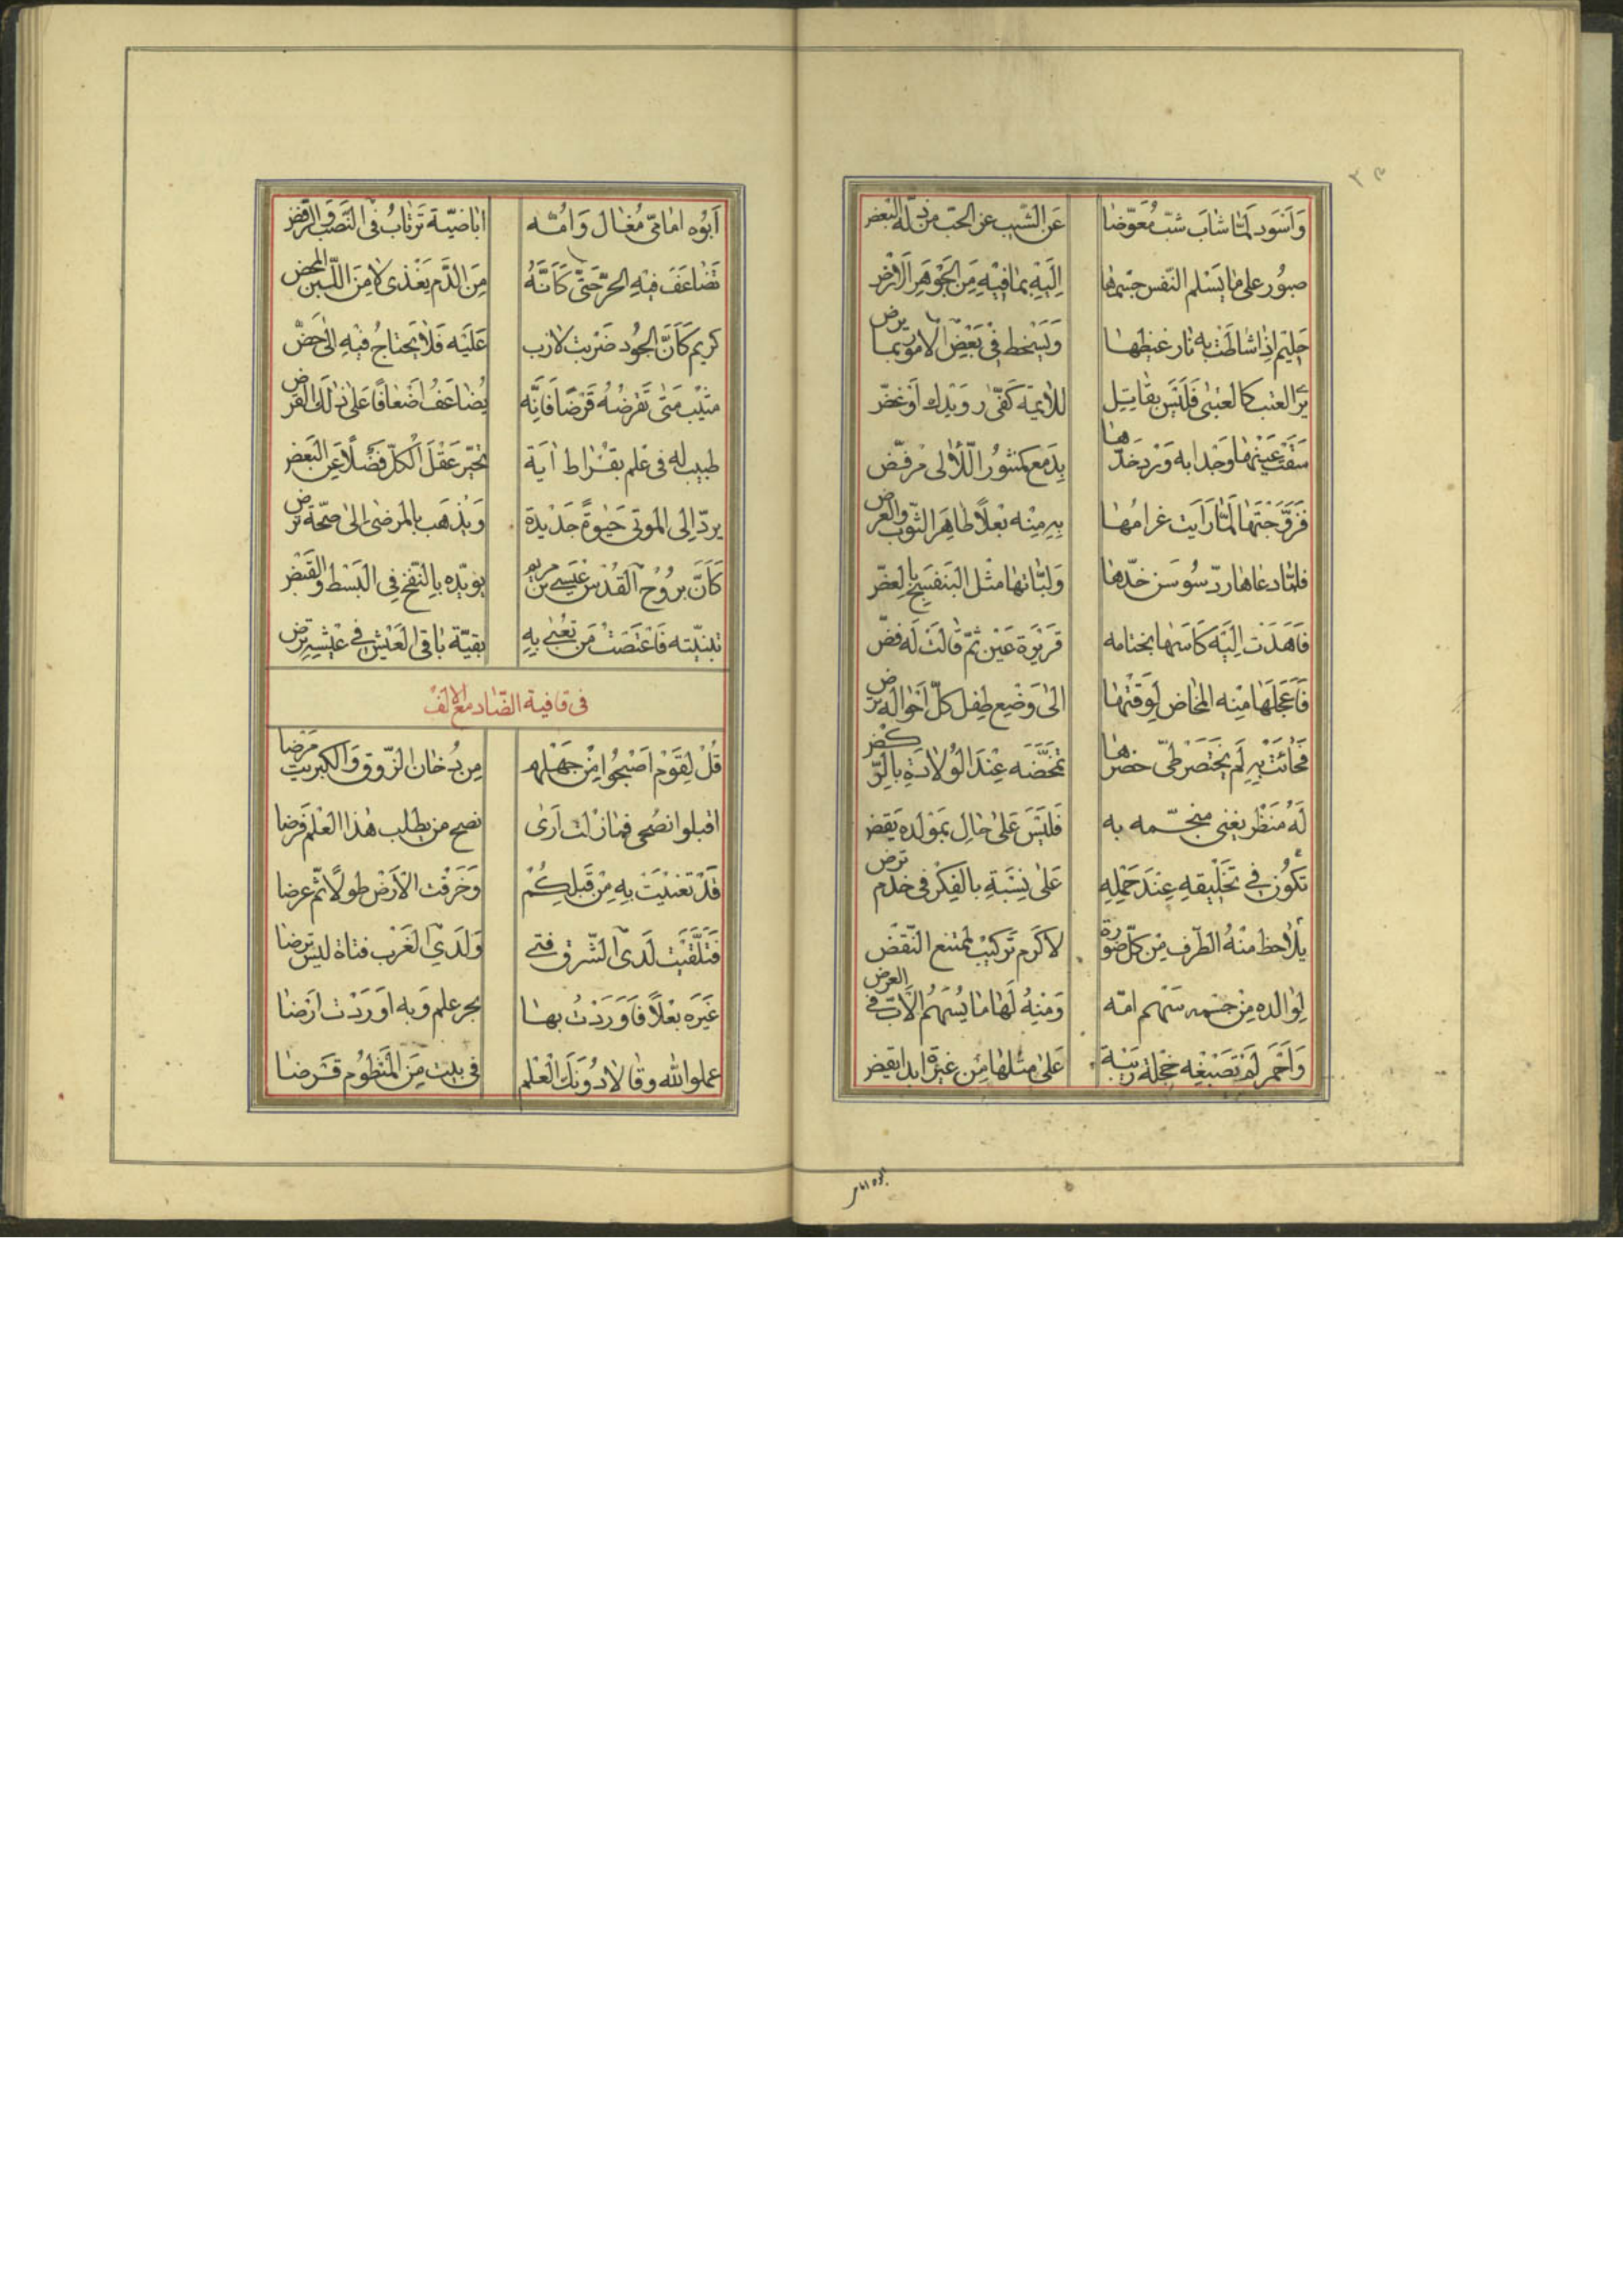 وَاَسْوَد لَمّا شابَ شبّ مُعَوّضا عَن الشَيب عن الحبّ من ذلّه البغض
صبُور على ما يَسْلم النّفس جسمها اِلَيْهِ بمافيْهِ مِنَ الجَوْهَر الاَرْضِ
حليم اِذا شاطَتْ به نار غيظها وَيَسْخط فى بَعْض الامور بما يرض
يرَ العتب كالعتبى فَلَيْسَ بقايل للايمة كفّى رويدك اوغضّ
سَقَتْ عَيْنها وَجْدا به وَرْد خدّها بِدَمع كمنثور اللّئالى مرفضّ
فَزَوَّجْتها لَمّا رَاَيت غرامُها بِهِ مِنْه بَعْلاً طاهِرَ الثّوب والعرض
فلمّا دعاها ردّ سُوسَن خدّها وَلبّاتها مثل البَنفسَج بالعضّ
فَاَهَدَت اِلَيْه كَاسَها بختامه قَرِيْرَة عَيْن ثمّ قالَتْ لَه فضّ
فَاَعْجَلَها مِنْه المخاض لِوَقْتها الىٰ وَضْيع طِفل كلّ اَحْواله يرض
فَجائتْ بِهِ لَم يختَصَر طىّ خصرها تمخّضَه عِنْدَ الْوُلادَةِ بالرّكض
لَهُ مَنْظر يغنى منجّمه به فَلَيْسَ عَلىٰ حالٍ بمَوْلده يَقض
تكَوُّن فى تخَلْيقهِ عِنْدَ حَمْلِهِ عَلىٰ نِسْبَةٍ بالفِكْر فى خدم ترض
يلاحظ مِنْهُ الطّرف مِن كلّ صُورة لاَكرَم تَركيْب لممتنع النّقض
لِوالده مِنْ جسْمه سَهْم امّه وَمِنْهُ لَها ما يُسْهُم الاَبّ فى العرض
وَاَحْمَر لَمْ تَصْبِغْه خجْلة رَيْبة عَلىٰ مثلها مِن غيرَة ابدا يقض
ابوه امام
اَبُوْه امامىّ مُغال وَامُّه اباضيّة تَرتابُ فى النَّصب والرّفض
تَضاعَفَ فيْهِ الحرّ حَتّىٰ كَاَنّهُ مِنَ الدَّم يَغْذى لا مِنَ اللّبن المحض
كريم كَاَنَّ الجُود ضَرْبت لازب عَلَيْه فَلا يَحْتاجُ فيْهِ الىٰ حَضّ
مثيْب مَتىٰ تَقرضُهُ قَرْضاً فَاِنّه يُضاعَفُ اَضْعافاً عَلىٰ ذٰلكَ القرض
طبيب له فى علم بقْراط اٰيَة تخبّر عَقْلَ الْكلّ فَضْلاً عَن البَعض
يردّ اِلى الموتى حَيٰوةً جَدْيدة وَيذهَب بالمرضىٰ الىٰ صحّة ترض
كَاَنَّ برُوُح القُدْس عيْسى بن مريم يؤيّده بِالنّفخ فى البَسْط والقَبْض
تبنيّته فَاعْتَضتْ مَن تعْنى بهِ بقيّة باقى العَيْش فى عيْشه ترض
فى قافية الضّاد مع الالف
قُلْ لِقَوْم اَصْبحُوا مِنْ جَهْلهم مِن دُخان الزّوق والكبريت مَرْضا
اقبلوا نصْحى فمازلت اَرىٰ نصح من يطلب هٰذا العْلم فرضا
قَدْ تعنيّت بِهِ مِنْ قَبلكُمْ وَخَرَقْت الاَرْض طولاً ثمّ عرضا
فَتَلَقَّيت لَدىّ الشّرق فتى وَلَدىّ الغَرْب فتاة ليس ترضا
غَيَره بَعْلاً فَاَوَرَدْت بها بحر علم وَبه اَوَرَدْت ارَضا
عملوا الله وقالا دُوْنَكَ العْلم فى بيت مِنَ المَنْظوُم قَرضا